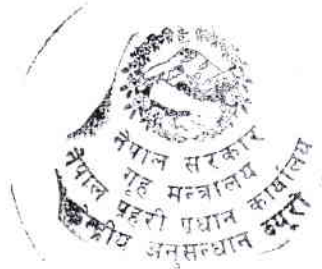 नेपाल सरकार
गृह मन्त्रालय
नेपाल प्रहरी प्रधान कार्यालय
अनुसन्धान ब्यूरो